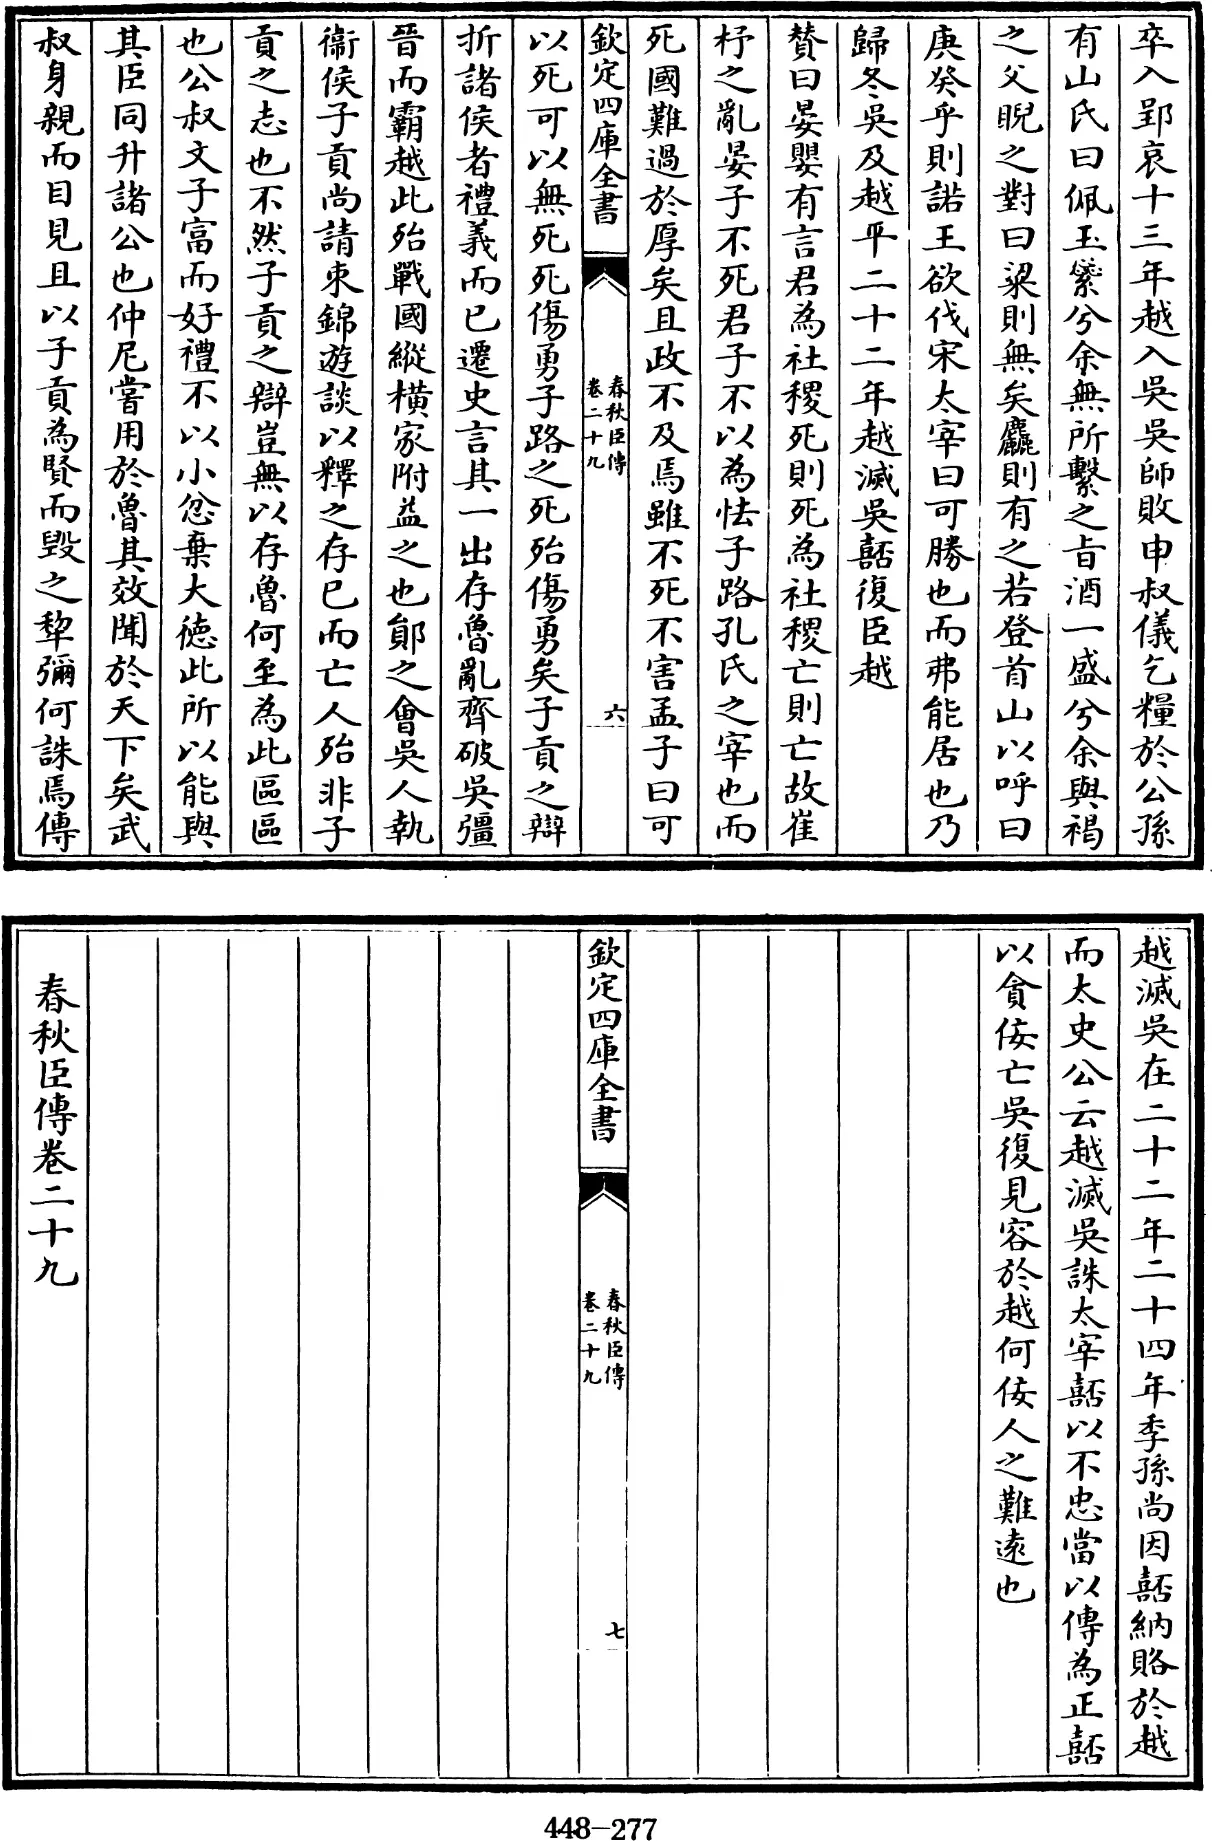 卒入郢哀十三年越入吳吳師敗申叔儀乞糧於公孫
有山氏曰佩玉繠兮余無所繫之旨酒一盛兮余與褐
之父睨之對曰粱則無矣麤則有之若登首山以呼曰
庚癸乎則諾王欲伐宋太宰曰可勝也而弗能居也乃
歸冬吳及越平二十二年越滅吳嚭復臣越
賛曰晏嬰有言君為社稷死則死為社稷亡則亡故崔
杼之亂晏子不死君子不以為怯子路孔氏之宰也而
死國難過於厚矣且政不及焉雖不死不害孟子曰可
欽定四庫全書
春秋臣傳
卷二十九
六
以死可以無死死傷勇子路之死殆傷勇矣子貢之辯
折諸侯者禮義而已遷史言其一出存魯亂齊破吳彊
晉而霸越此殆戰國縱橫家附益之也鄖之會吳人執
衞侯子貢尚請束錦遊談以釋之存已而亡人殆非子
貢之志也不然子貢之辯豈無以存魯何至為此區區
也公叔文子富而好禮不以小忿棄大徳此所以能與
其臣同升諸公也仲尼嘗用於魯其效聞於天下矣武
叔身親而目見且以子貢為賢而毀之犂彌何誅焉傳
越滅吳在二十二年二十四年季孫尚因嚭納賂於越
而太史公云越滅吳誅太宰嚭以不忠當以傳為正嚭
以貪佞亡吳復見容於越何佞人之難遠也
欽定四庫全書
春秋臣傳
卷二十九
七
春秋臣傳卷二十九
448-277